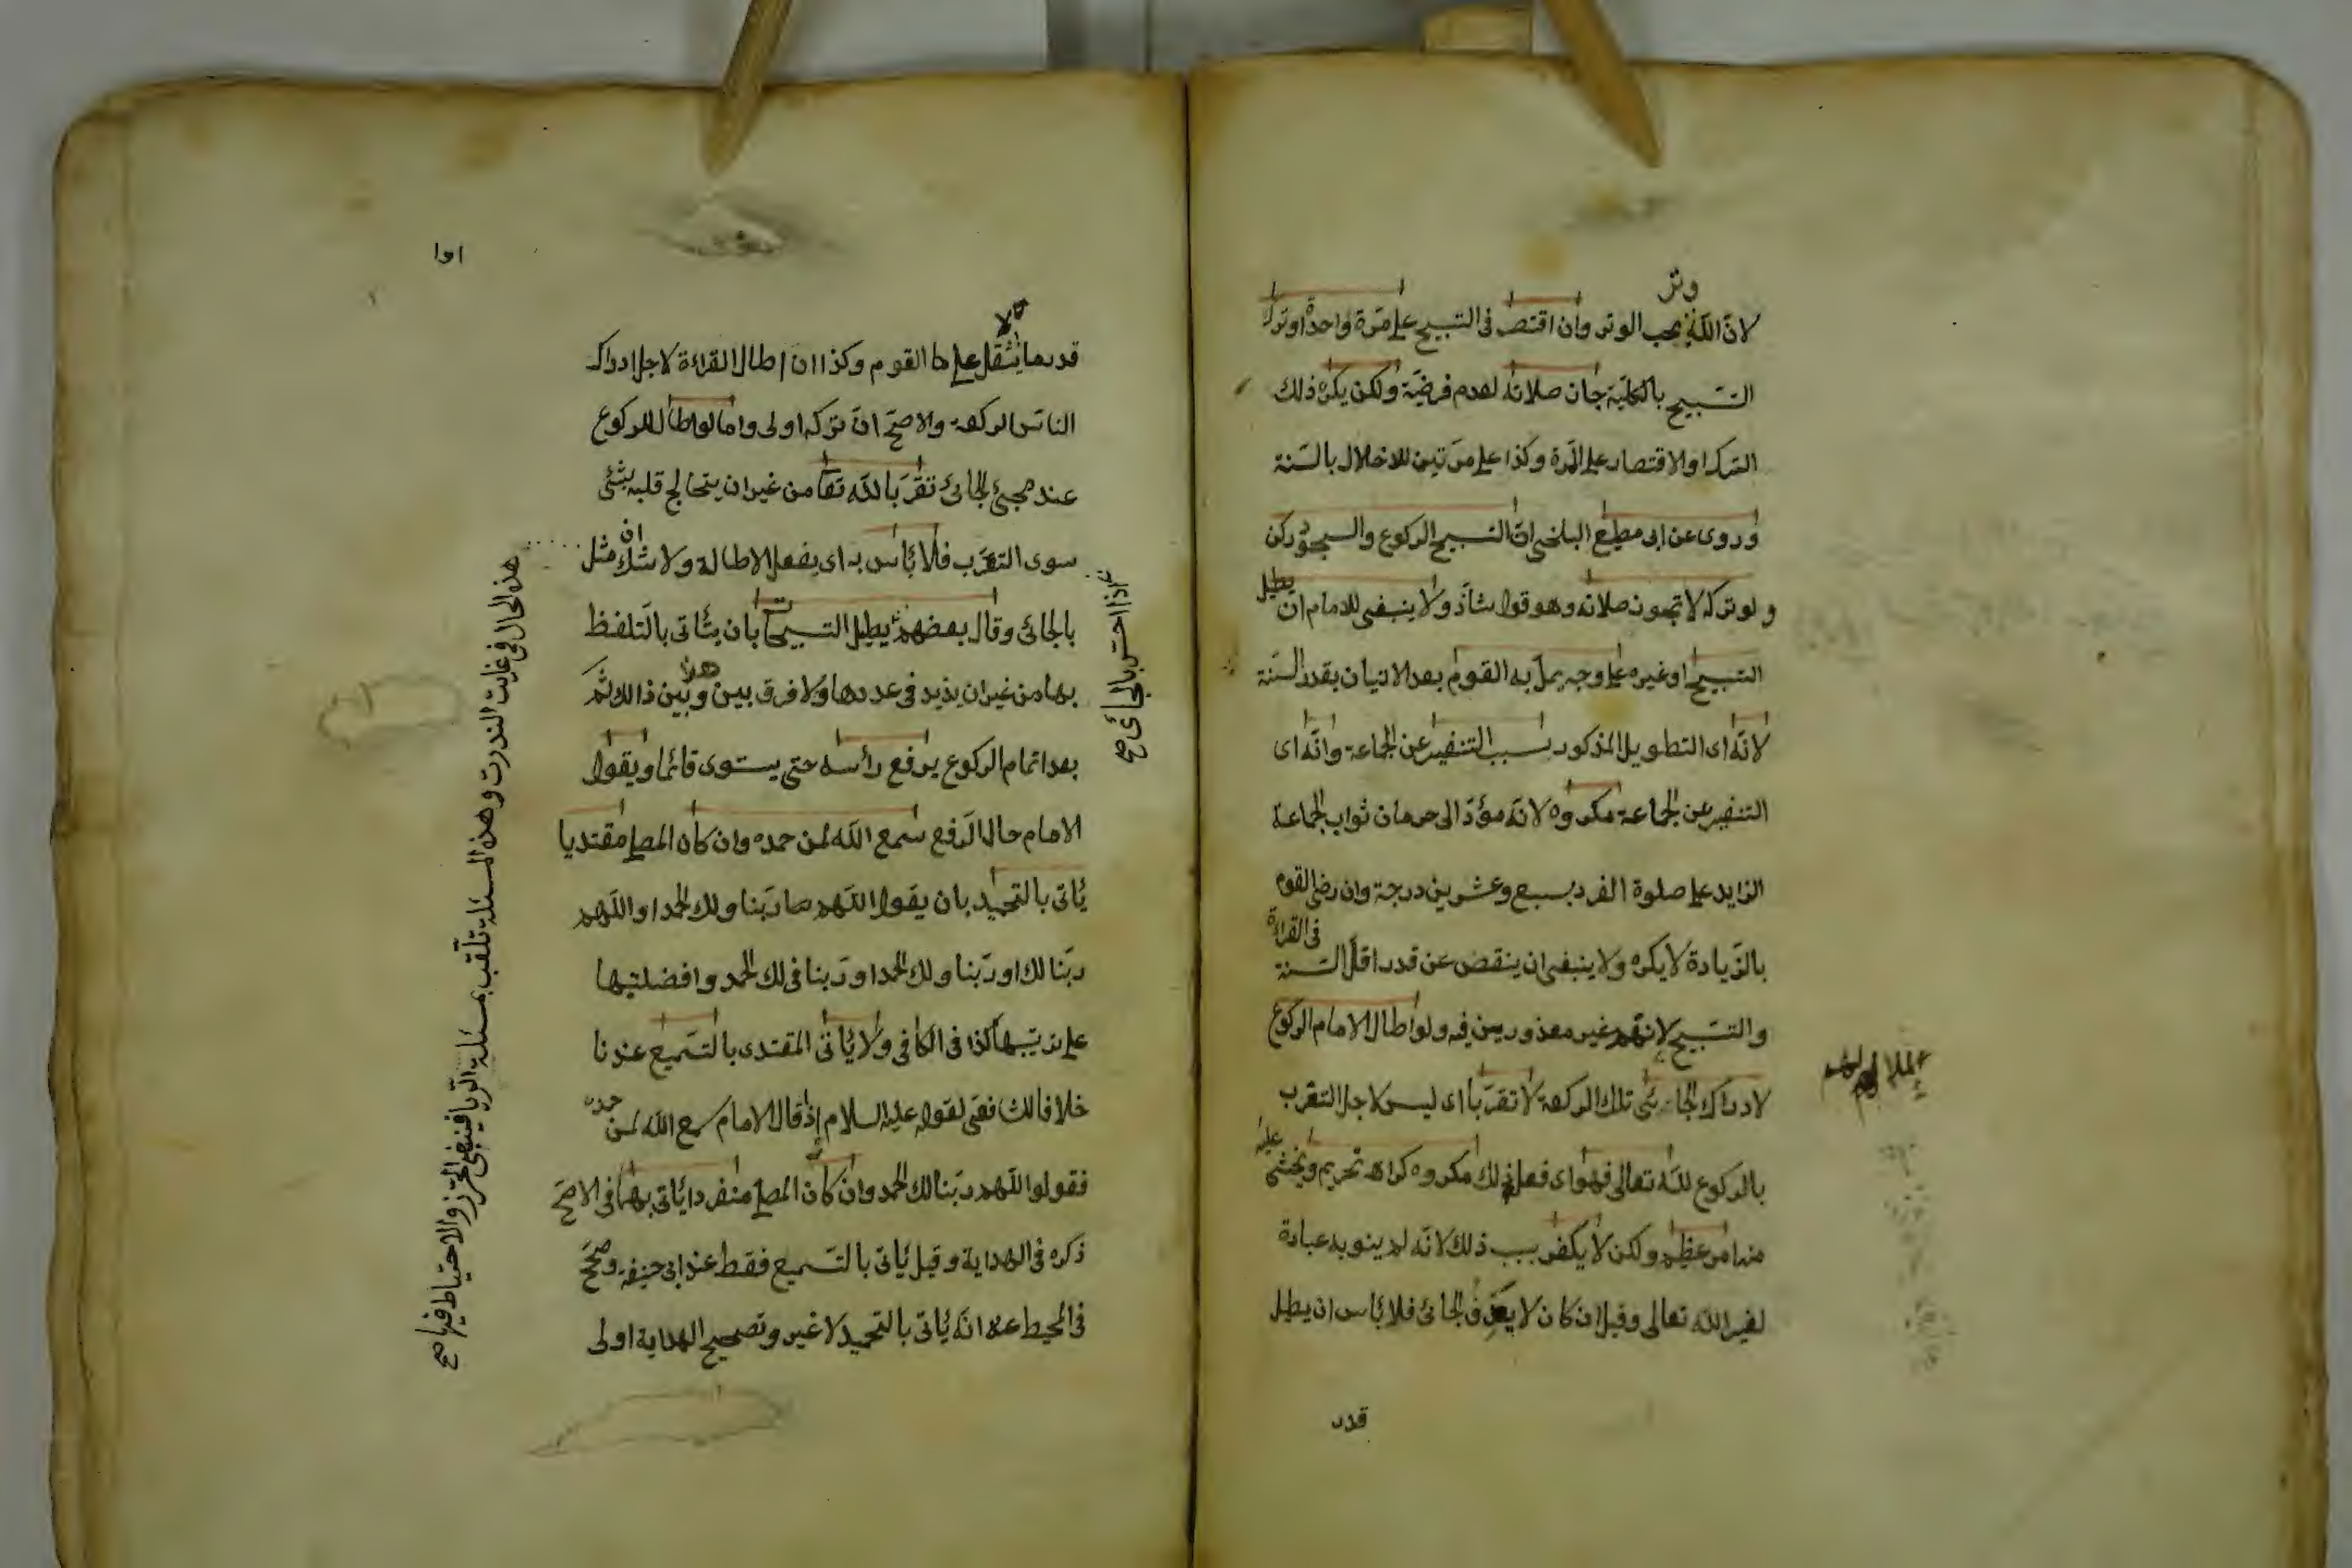 وتر
لانّ اللّه يحب الوتر وان اقتصر فى التسبيح على مرّة واحدة او ترك
التسبيح بالكليّة جازت صلاته لعدم فرضيّة ولكن يكره ذلك
الترك او الاقتصار على المرّة وكذا على مرّتين للاخلال بالسّنة
وروى عن ابى مطيع البلخى انّ التسبيح الركوع والسجود ركن
ولو تركه لا تجوز صلاته وهو قول شاذّ ولا ينبغى للامام ان يطيل
التسبيح او غيره على وجه يملّ به القوم بعد الاتيان بقدر السّنة
لانّه اى التطويل المذكور بسبب التنفير عن الجماعة وانّه اى
التنفير عن الجماعة مكروه لانّه مؤدّ الى حرمان ثواب الجماعة
الزايد على صلوة الفرد بسبع وعشرين درجة وان رضى القوم
بالزّيادة لا يكره ولا ينبغى ان ينقص عن قدر اقلّ السّنة فى القراءة
والتسبيح لانّهم غير معذورين فيه ولو اطال الامام الركوع
لادراك الجائى تلك الركعة لا تقرّبا اى ليس لاجل التقرب
بالركوع للّه تعالى فهو اى فعل ذلك مكروه كراهة تحريم ويخشى عليه
منه امر عظيم ولكن لا يكفر بسبب ذلك لانّه لم ينو به عبادة
لغير اللّه تعالى وقيل ان كان لا يعرف الجائى فلا بأس ان يطيل
قدر
١٥١
قدر ما يثقل على القوم وكذا ان اطال القراءة لاجل ادراك
الناس الركعة والاصحّ انّ تركه اولى واما لو اطال للركوع
عند مجئ الجائى تقرّبا للّه تعا من غير ان يتخالج قلبه بشئ
سوى التقرّب فلا بأس به اى بفعل الاطالة ولا شك ان مثل
بالجائى وقال بعضهم يطيل التسبيح بان يتأتى بالتلفظ
بها من غير ان يزيد فى عددها ولا فرق بين هذا وبين ذالك ثمّ
بعد اتمام الركوع يرفع رأسه حتى يستوى قائما ويقول
الامام حال الرّفع سمع اللّه لمن حمده وان كان المصلى مقتديا
يأتى بالتحميد بان يقول اللّهم ربّنا ولك الحمد او اللّهم
ربّنا لك او ربّنا ولك الحمد او ربّنا فى لك الحمد وافضليتها
على ترتيبها كذا فى الكافى ولا يأتى المقتدى بالتسميع عندنا
خلافا للشافعى لقوله عليه السلام اذ قال الامام سمع اللّه لمن حمده
فقولوا اللّهم ربّنا لك الحمد وان كان المصلى منفردا يأتى بهما فى الاصحّ
ذكره فى الهداية وقيل يأتى بالتسميع فقط عند ابى حنيفة وصحّح
فى المحيط عنه انّه يأتى بالتحميد لا غير وتصحيح الهداية اولى
اذا احسّ بالجائى صح
هذه الحال فى غايت الندرت وهذه المسئلة تلقّب بمسئلة الرّيا فينبغى التحرّز والاحتياط فيها صح